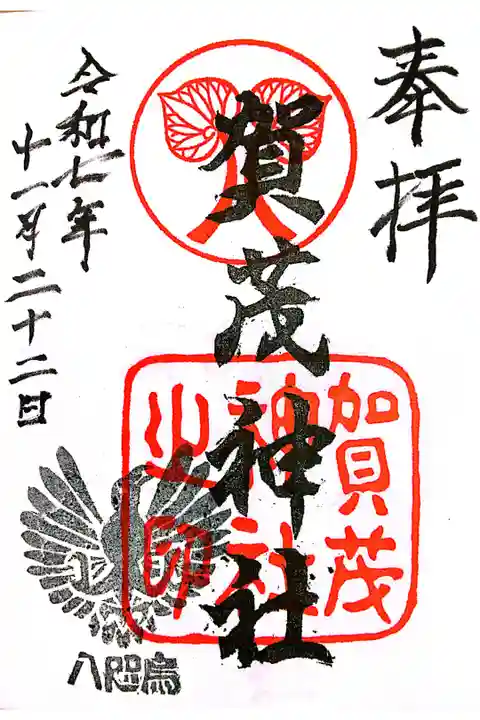 奉拝
賀茂神社
賀茂
神社
之印
令和七年
十一月二十二日
八咫烏